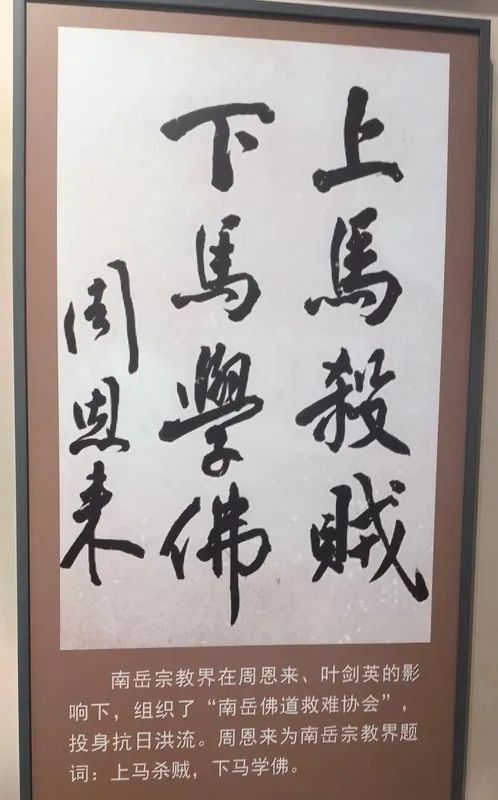 上馬殺賊
下馬學佛
周恩来
南岳宗教界在周恩来、叶剑英的影
响下，组织了“南岳佛道救难协会”，
投身抗日洪流。周恩来为南岳宗教界题
词：上马杀贼，下马学佛。